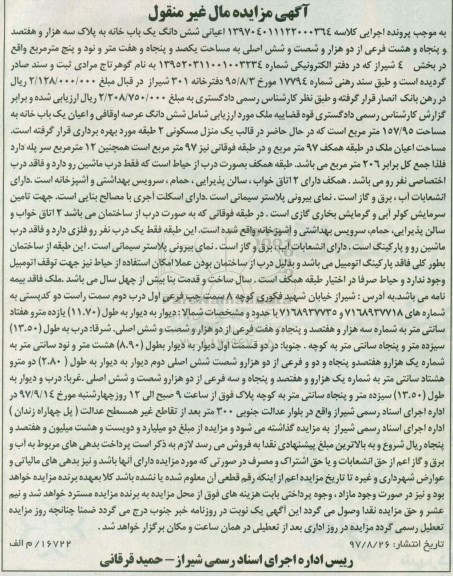 آگهی مزایده مال غیر منقول
به موجب پرونده اجرایی کلاسه ۱۳۹۷۰۴۰۱۱۱۲۲۰۰۰۳۶۴ اعیانی شش دانگ یک باب خانه به پلاک سه هزار و هفتصد
و پنجاه و هشت فرعی از دو هزار و شصت و شش اصلی به مساحت یکصد و پنجاه و هفت متر و نود و پنج مترمربع واقع
در بخش ۴ شیراز که در دفتر الکترونیکی شماره ۱۳۹۵۲۰۳۱۱۰۰۱۰۰۳۲۳۴ به نام گوهرتاج مرادی ثبت و سند صادر
گردیده است و طبق سند رهنی شماره ۱۷۷۹۴ مورخ ۹۵/۸/۳ دفترخانه ۳۰۱ شیراز در قبال مبلغ ۲/۱۲۸/۰۰۰/۰۰۰ ریال
در رهن بانک انصار قرار گرفته و طبق نظر کارشناس رسمی دادگستری به مبلغ ۲/۲۰۸/۷۵۰/۰۰۰ ریال ارزیابی شده و برابر
گزارش کارشناس رسمی دادگستری قوه قضاییه ملک مورد ارزیابی شامل شش دانگ عرصه اوقافی و اعیان یک باب خانه به
مساحت ۱۵۷/۹۵ متر مربع است که در حال حاضر در قالب یک منزل مسکونی ۲ طبقه مورد بهره برداری قرار گرفته است.
مساحت اعیان ملک در طبقه همکف ۹۷ متر مربع و در طبقه فوقانی نیز ۹۷ متر مربع است همچنین ۱۲ مترمربع سر پله دارد
فلذا جمع کل برابر ۲۰۶ متر مربع می باشد. طبقه همکف بصورت درب از حیاط است که فقط درب ماشین رو دارد و فاقد درب
اختصاصی نفر رو می باشد . همکف دارای ۲ اتاق خواب ، سالن پذیرایی ، حمام ، سرویس بهداشتی و آشپزخانه است .دارای
انشعابات آب ، برق و گاز است . نمای بیرونی پلاستر سیمانی است .دارای اسکلت آجری با مصالح بنایی است. جهت تامین
سرمایش کولر آبی و گرمایش بخاری گازی است . در طبقه فوقانی که به صورت درب از ساختمان می باشد ۲ اتاق خواب و
سالن پذیرایی، حمام، سرویس بهداشتی و آشپزخانه واقع شده است. این طبقه فقط یک درب نفر رو فلزی دارد و فاقد درب
ماشین رو و پارکینگ است . دارای انشعابات آب، برق و گاز است . نمای بیرونی پلاستر سیمانی است . این طبقه از ساختمان
بطور کلی فاقد پارکینگ اتومبیل می باشد و بدلیل درب از ساختمان بودن عملا امکان استفاده از حیاط نیز جهت توقف اتومبیل
وجود ندارد و حیاط صرفا در اختیار طبقه همکف است . سال ساخت و قدمت بنا بیش از چهل سال می باشد .ملک فاقد بیمه
نامه می باشد.به آدرس : شیراز خیابان شهید فکوری کوچه ۸ سمت چپ فرعی اول درب دوم سمت راست دو کدپستی به
شماره های ۷۱۶۸۹۳۷۷۱۸ و ۷۱۶۸۹۳۷۷۳۵ با حدود و مشخصات شمالا : دیوار به دیوار به طول (۱۱.۷۰) یازده مترو هفتاد
سانتی متر به شماره سه هزار و هفتصد و پنجاه و هفت فرعی از دو هزار و شصت و شش اصلی. شرقا: درب به طول (۱۳.۵۰)
سیزده متر و پنجاه سانتی متر به کوچه . جنوبا: در دو قسمت اول دیوار به دیوار بطول (۸.۹۰) هشت متر و نود سانتی متر به
شماره یک هزارو هفتصدو پنجاه و دو فرعی از دو هزارو شصت شش اصلی دوم دیوار به دیوار به طول (۲.۸۰) دو مترو
هشتاد سانتی متر به شماره یک هزارو و هفتصد و پنجاه و سه فرعی از دو هزارو شصت و شش اصلی .غربا: درب و دیوار به
طول (۱۳.۵۰) سیزده متر و پنجاه سانتی متر به کوچه پلاک فوق از ساعت ۹ صبح الی ۱۲ روز چهارشنبه مورخ ۹۷/۹/۱۴ در
اداره اجرای اسناد رسمی شیراز واقع در بلوار عدالت جنوبی ۳۰۰ متر بعد از تقاطع غیر همسطح عدالت ( پل چهاراه زندان )
اداره اجرای اسناد رسمی شیراز به مزایده گذاشته می شود و مزایده از مبلغ دو میلیارد و دویست و هشت میلیون و هفتصد و
پنجاه ریال شروع و به بالاترین مبلغ پیشنهادی نقدا به فروش می رسد لازم به ذکر است پرداخت بدهی های مربوط به آب و
برق و گاز اعم از حق انشعابات و یا حق اشتراک و مصرف در صورتی که مورد مزایده دارای آنها باشد و نیز بدهی های مالیاتی و
عوارض شهرداری و غیره تا تاریخ مزایده اعم از اینکه رقم قطعی آن معلوم شده یا نشده باشد کلا بعهده برنده مزایده خواهد
بود و نیز در صورت وجود مازاد ، وجوه پرداختی بابت هزینه های فوق از محل مزایده به برنده مزایده مسترد خواهد شد و نیم
عشر و حق مزایده نقدا وصول می گردد این آگهی یک نوبت در روزنامه خبر جنوب درج می گردد ضمنا چنانچه روز مزایده
تعطیل رسمی گردد مزایده در روز اداری بعد از تعطیلی در همان ساعت و مکان برگزار خواهد شد .
تاریخ انتشار: ۹۷/۸/۲۶
۱۶۷۲۲/ م الف
رییس اداره اجرای اسناد رسمی شیراز – حمید قرقانی